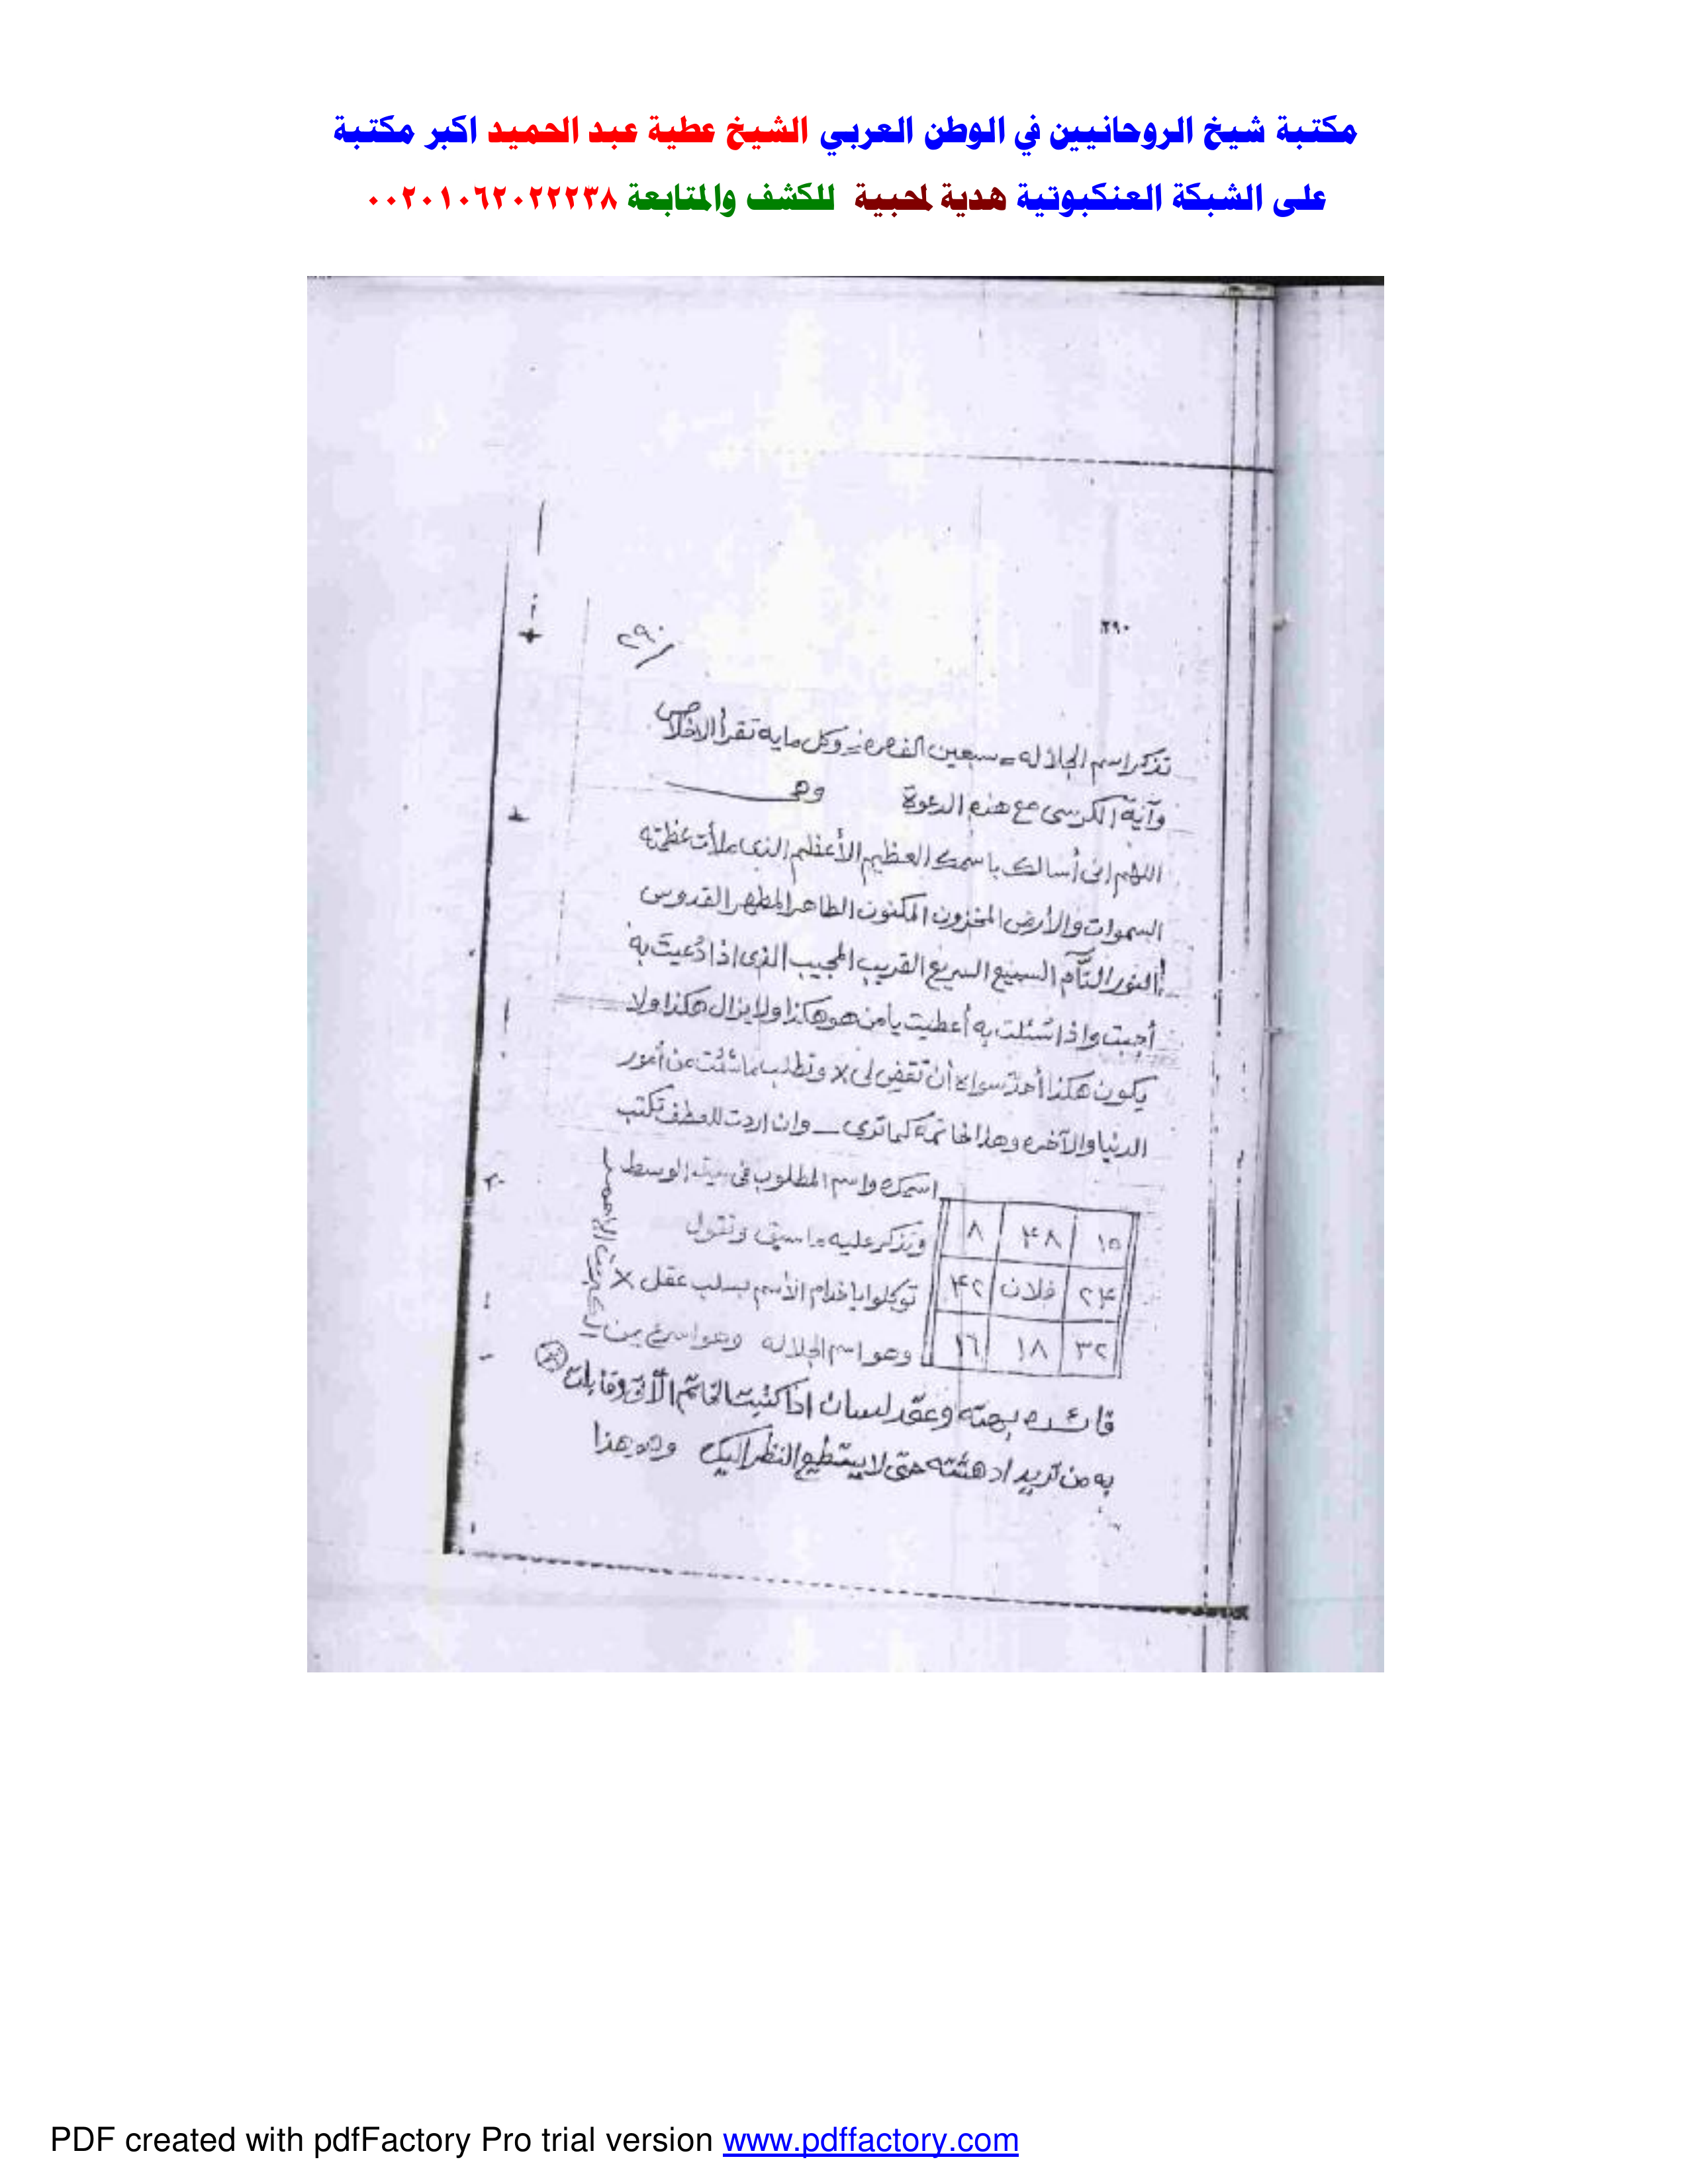 مكتبة شيخ الروحانيين في الوطن العربي الشيخ عطية عبد الحميد اكبر مكتبة
على الشبكة العنكبوتية هدية لمحبية للكشف والمتابعة ٠٠٢٠١٠٦٢٠٢٢٢٣٨
٢٩٠
٢٩٠/
تذكر اسم الجلاله = سبعين الف مره = وكل مايه تقرأ الاخلاص
وآية الكرسى مع هذه الدعوة وهـ
اللهم انى أسالك باسمك العظيم الأعظم الذى ملأت عظمته
السموات والأرض المخزون المكنون الطاهر المطهر القدوس
النور التآم السميع السريع القريب المجيب الذى اذا دُعيت به
أجبت واذا سُئلت به أعطيت يا من هو هكذا ولا يزال هكذا ولا
يكون هكذا أحدٌ سواه أن تقضى لى x وتطلب ما شئت من أمور
الدنيا والآخره وهذا خاتمه كما ترى ـ وان اردت للعطف تكتب
اسمك واسم المطلوب فى بيت الوسط
١٥ ٤٨ ٨
وتذكر عليه ما سبق وتقول
٢٤ فلان ٤٢
توكلوا يا خدام الأسم بسلب عقل x
٣٢ ١٨ ١٦
وهو اسم الجلاله وهو اسرع من
فائده بهته وعقد لسان اذا كتبت الخاتم الآتى وقابلت
به من تريد ادهشته حتى لا يستطيع النظر اليك وهو هذا
PDF created with pdfFactory Pro trial version www.pdffactory.com